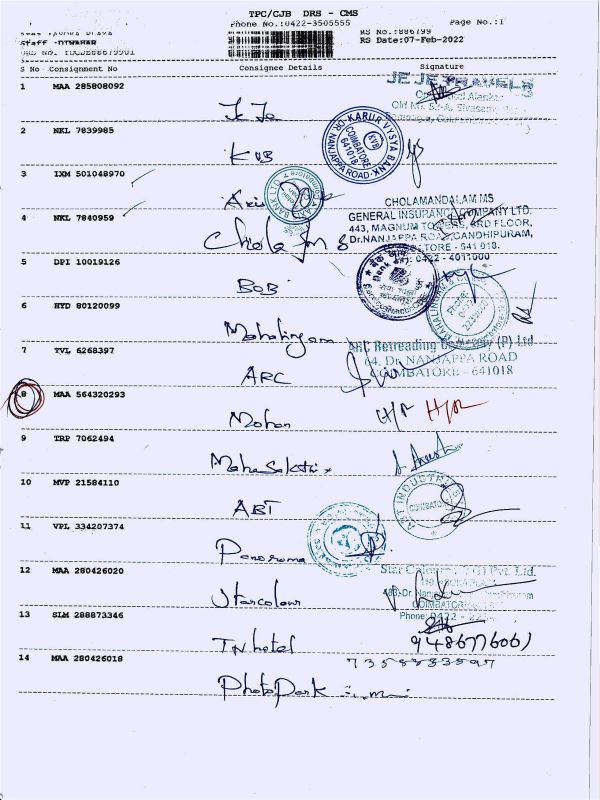 TPC/CJB DRS - CMS
Phone No.:0422-3505555 Page No.:1
RS No.:886799
Staff :DIWAHAR RS Date:07-Feb-2022
S No Consignment No Consignee Details Signature
1 MAA 285808092 Je Je
JE JE TRAVELS
2 NKL 7839985 KVB
KARUR VYSYA BANK
KVB
COIMBATORE
641018
DR. NANJAPPA ROAD
3 IXM 501048970 Axis
4 NKL 7840959 Chola
CHOLAMANDALAM MS
GENERAL INSURANCE COMPANY LTD.
443, MAGNUM TOWERS, 3RD FLOOR,
Dr.NANJAPPA ROAD, GANDHIPURAM,
COIMBATORE - 641 018.
0422 - 4011000
5 DPI 10019126 BOB
6 HYD 80120099 Mahalingam
7 TVL 6268397 ARC
ARC Retreading Company (P) Ltd
64, Dr. NANJAPPA ROAD
COIMBATORE - 641018
8 MAA 564320293 Mohan
9 TRP 7062494 Mahasakthi
10 MVP 21584110 ABT
COIMBATORE
11 VPL 334207374 Panorama
12 MAA 280426020 Starcolour
Pvt. Ltd.
COIMBATORE
Phone: 0422
13 SLM 288873346 TN hotel
9486776061
14 MAA 280426018 PhotoPark